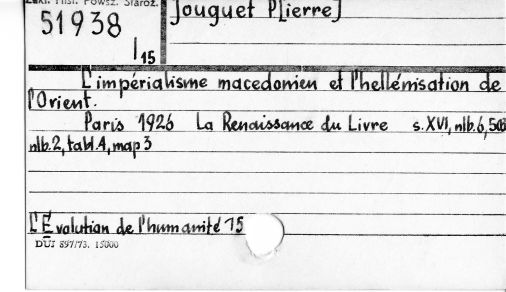 Zakł. Hist. Powsz. Staroż.
51938
15
Jouguet P[ierre]
L'impérialisme macedonien et l'hellénisation de
l'Orient.
Paris 1926 La Renaissance du Livre s.XVI, nlb.6, 503
nlb.2, tabl.4, map 3
L'Évolution de l'humanité 15
DUJ 897/73. 15000